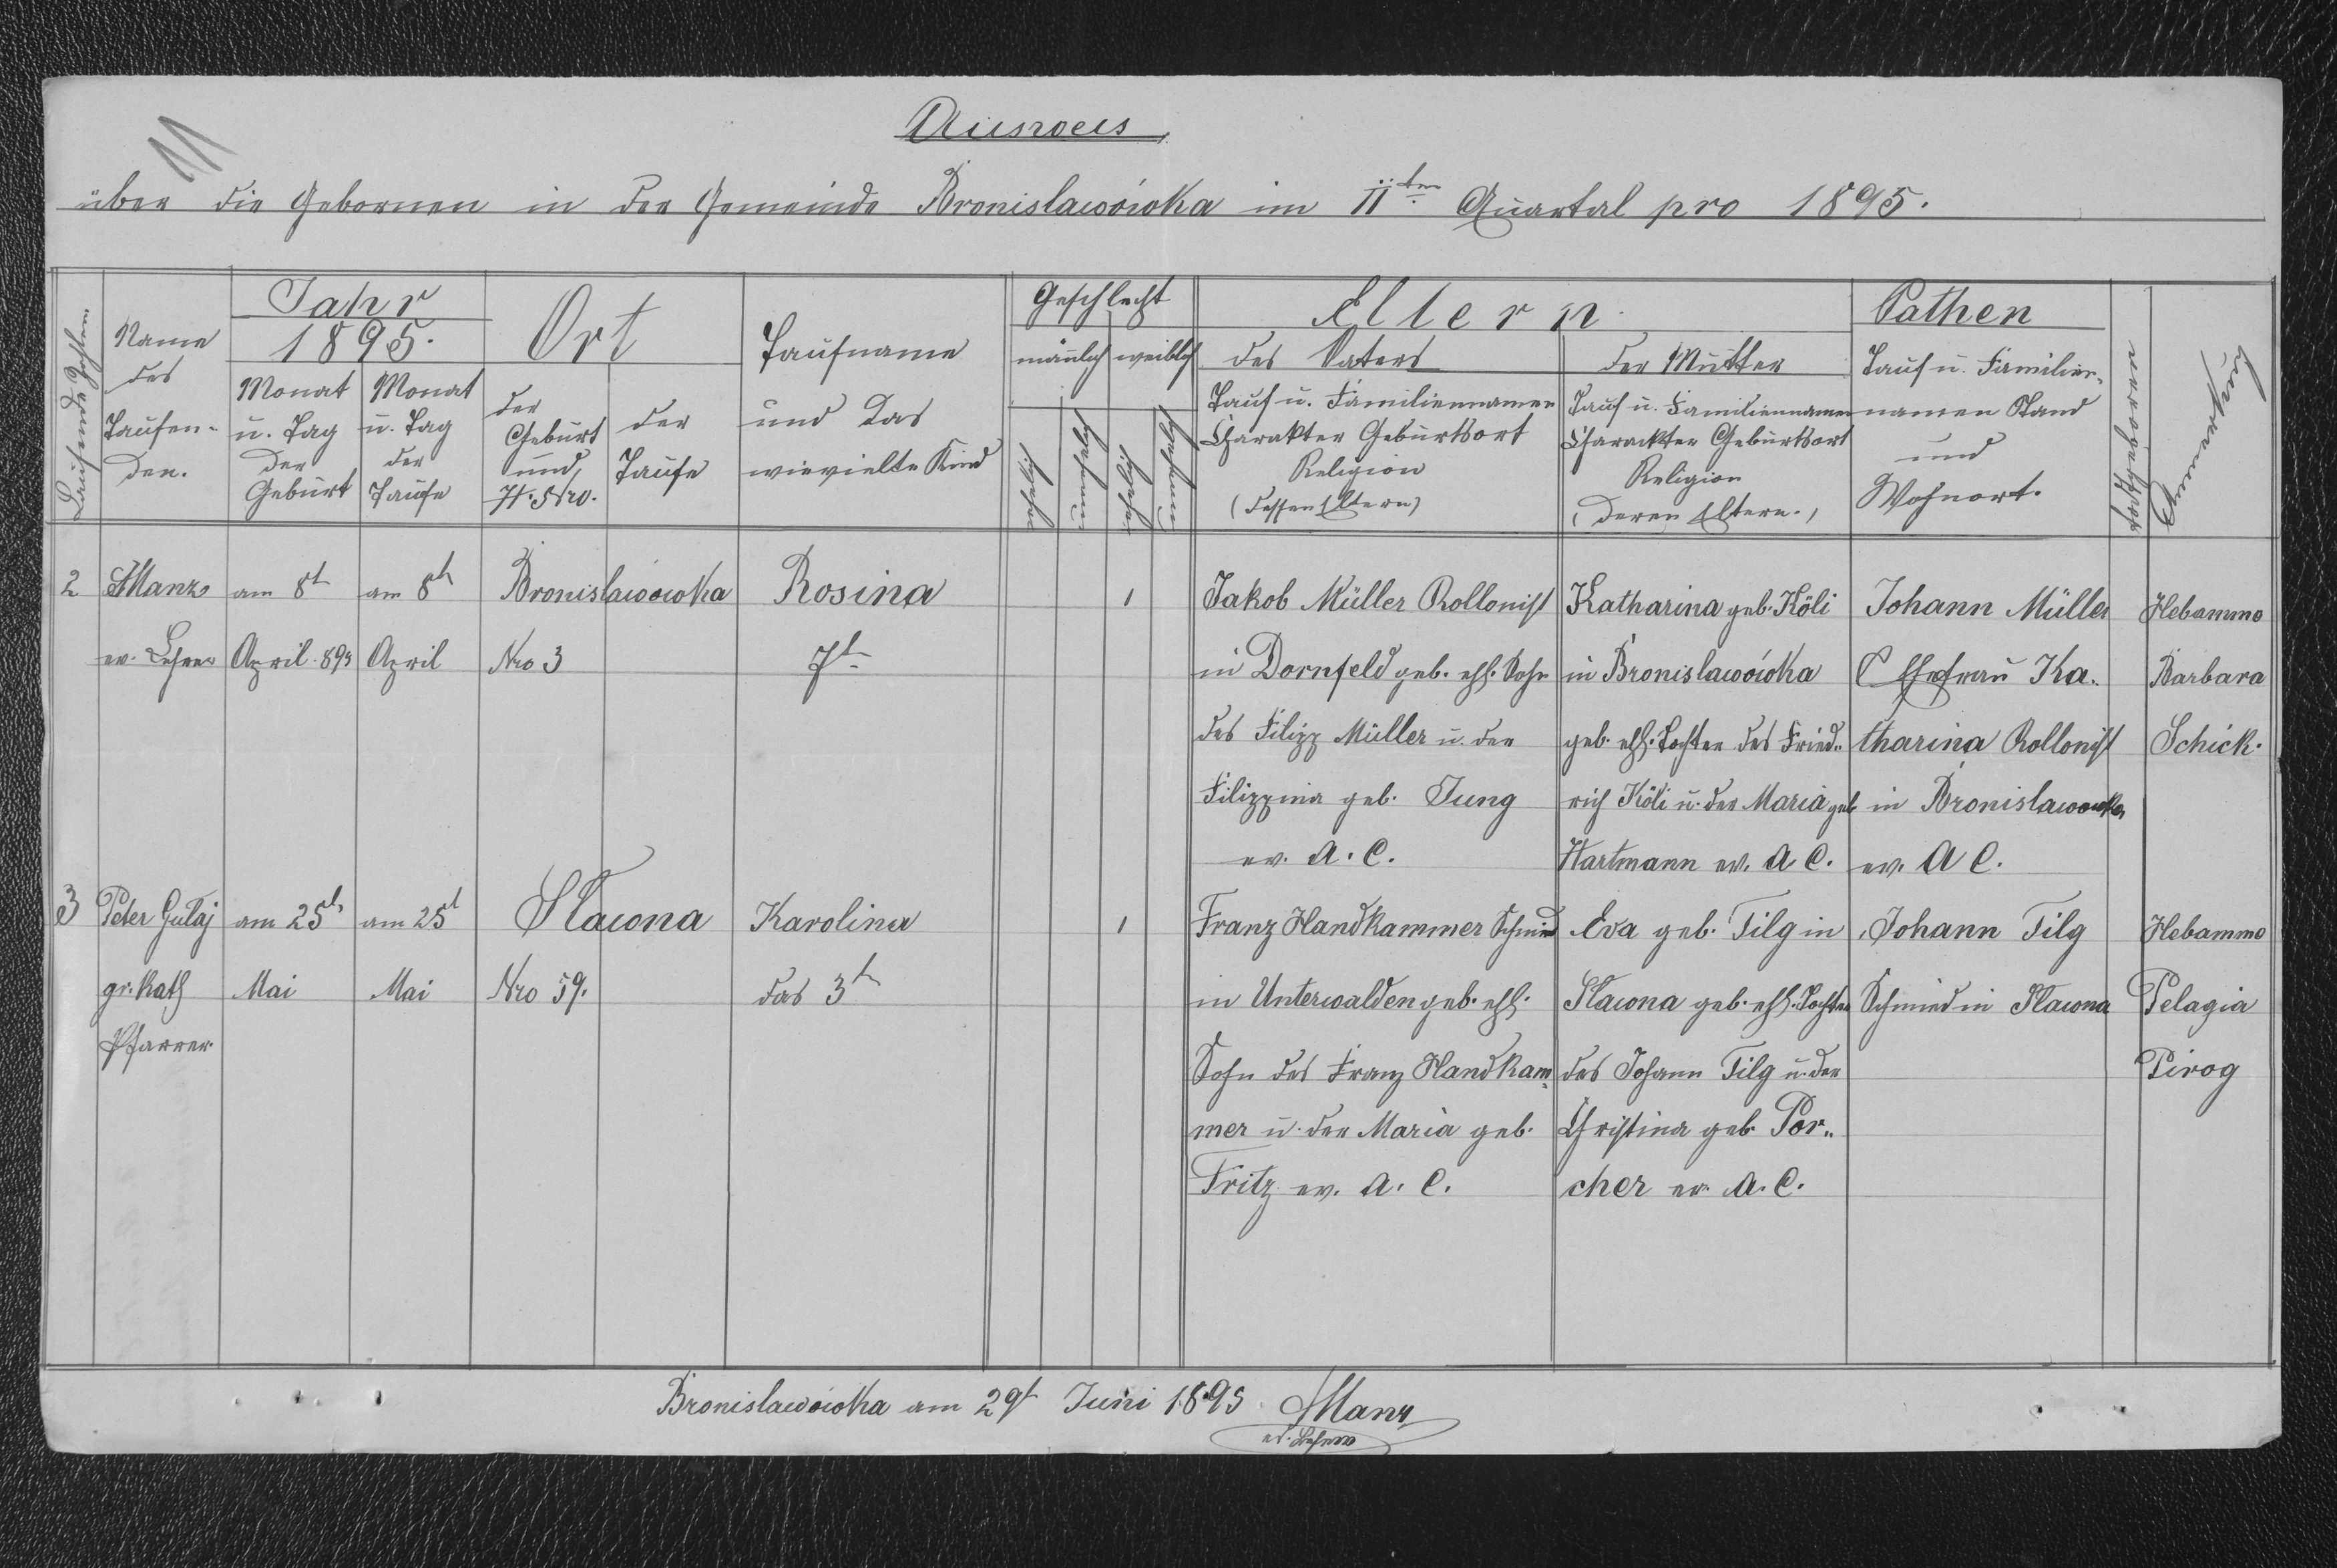 11
Ausweis
über die Gebornen in der Gemeinde Bronislawówka im IIten Quartal pro 1895.
Laufende Zahlen
Name
des
Taufen-
den.
Jahr
1895.
Monat
u. Tag
der
Geburt
Monat
u. Tag
der
Taufe
Ort
der
Geburt
und
H. Nro.
der
Taufe
Taufname
und das
wievielte Kind
Geschlecht
männlich weiblich
Eltern
des Vaters
Tauf u. Familiennamen
Charakter Geburtsort
Religion
(dessen Eltern)
der Mutter
Tauf u. Familiennamen
Charackter Geburtsort
Religion
(deren Eltern.)
Pathen
Tauf u. Familien-
namen Stand
und
Wohnort.
Anmerkung
2
Manz
ev. Lehrer
am 8t
April 895
am 8t
April
Bronislawówka
Nro 3
Rosina
7t
1
Jakob Müller Kollonist
in Dornfeld geb. ehl. Sohn
des Filipp Müller u. der
Filippina geb. Jung
ev. A. C.
Katharina geb. Köli
in Bronislawówka
geb. ehl. Tochter des Fried-
rich Köli u. der Maria geb
Hartmann ev. A C.
Johann Müller
Ehefrau Ka-
tharina Kollonist
in Bronislawowka
ev. A C.
Hebamme
Barbara
Schick.
3
Peter Gulaj
gr. Kath
Pfarrer
am 25t
Mai
am 25t
Mai
Slawna
Nro 59.
Karolina
das 3t
1
Franz Handkammer Schmied
in Unterwalden geb. ehl.
Sohn des Franz Handkam-
mer u. der Maria geb.
Fritz ev. A. C.
Eva geb. Tilg in
Slawna geb. ehl. Tochter
des Johann Tilg u. der
Christina geb. Por-
cher ev. A. C.
Johann Tilg
Schmied in Slawna
Hebamme
Pelagia
Pirog
Bronislawówka am 29t Juni 1895 Manz
ev. Lehrer